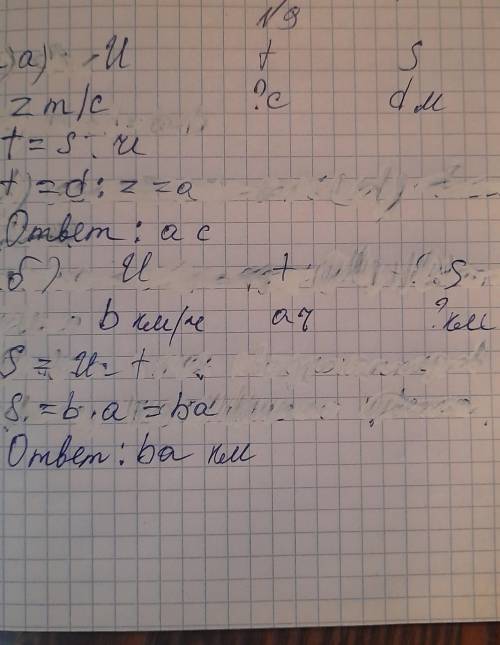 №9
а) И t S
z m/c ?c d м
t = S : и
t = d : z = a
Ответ: a c
б) И t S
b км/ч a ч ? км
S = и · t
S = b · a = ba
Ответ: ba км